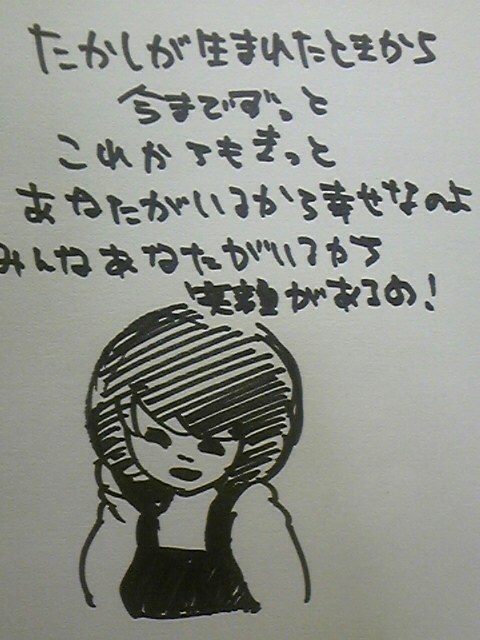 たかしが生まれたときから
今までずっと
これからもきっと
あなたがいるから幸せなのよ
みんなあなたがいるから
笑顔があるの！